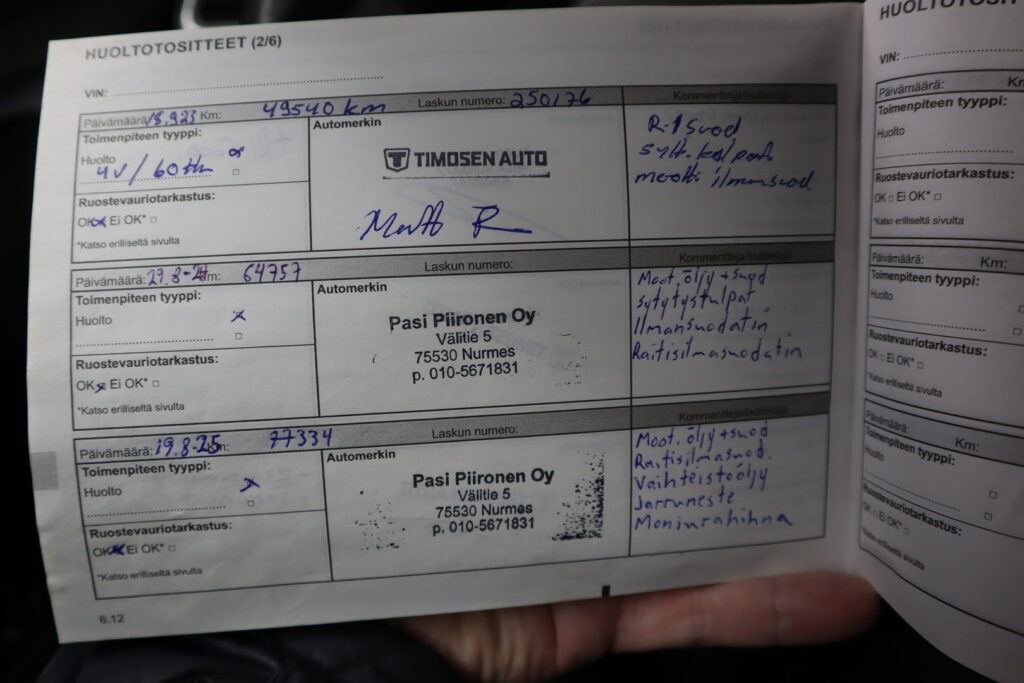 HUOLTOTOSITTEET (2/6)
VIN:
Päivämäärä: Km: 49540 km Laskun numero: 250176 Kommentteja/lisätietoja
Toimenpiteen tyyppi:
Huolto
4v / 60tkm
Ruostevauriotarkastus:
OK Ei OK*
*Katso erilliseltä sivulta
Automerkin
TIMOSEN AUTO
R-1 suod
syt. tulpat
moott. ilmansuod
Päivämäärä: 29.8-24 Km: 64757 Laskun numero: Kommentteja/lisätietoja
Toimenpiteen tyyppi:
Huolto
Ruostevauriotarkastus:
OK Ei OK*
*Katso erilliseltä sivulta
Automerkin
Pasi Piironen Oy
Välitie 5
75530 Nurmes
p. 010-5671831
Moot. öljy + suod
Sytytystulpat
Ilmansuodatin
Raitisilmasuodatin
Päivämäärä: 19.8-25 Km: 77334 Laskun numero: Kommentteja/lisätietoja
Toimenpiteen tyyppi:
Huolto
Ruostevauriotarkastus:
OK Ei OK*
*Katso erilliseltä sivulta
Automerkin
Pasi Piironen Oy
Välitie 5
75530 Nurmes
p. 010-5671831
Moot. öljy + suod
Raitisilmasuod.
Vaihteistoöljy
Jarruneste
Moniurahihna
6.12
VIN:
Päivämäärä:
Toimenpiteen tyyppi:
Huolto
Ruostevauriotarkastus:
OK Ei OK*
*Katso erilliseltä sivulta
Päivämäärä: Km:
Toimenpiteen tyyppi:
Huolto
Ruostevauriotarkastus:
OK Ei OK*
*Katso erilliseltä sivulta
Päivämäärä: Km:
Toimenpiteen tyyppi:
Huolto
Ruostevauriotarkastus:
OK Ei OK*
*Katso erilliseltä sivulta